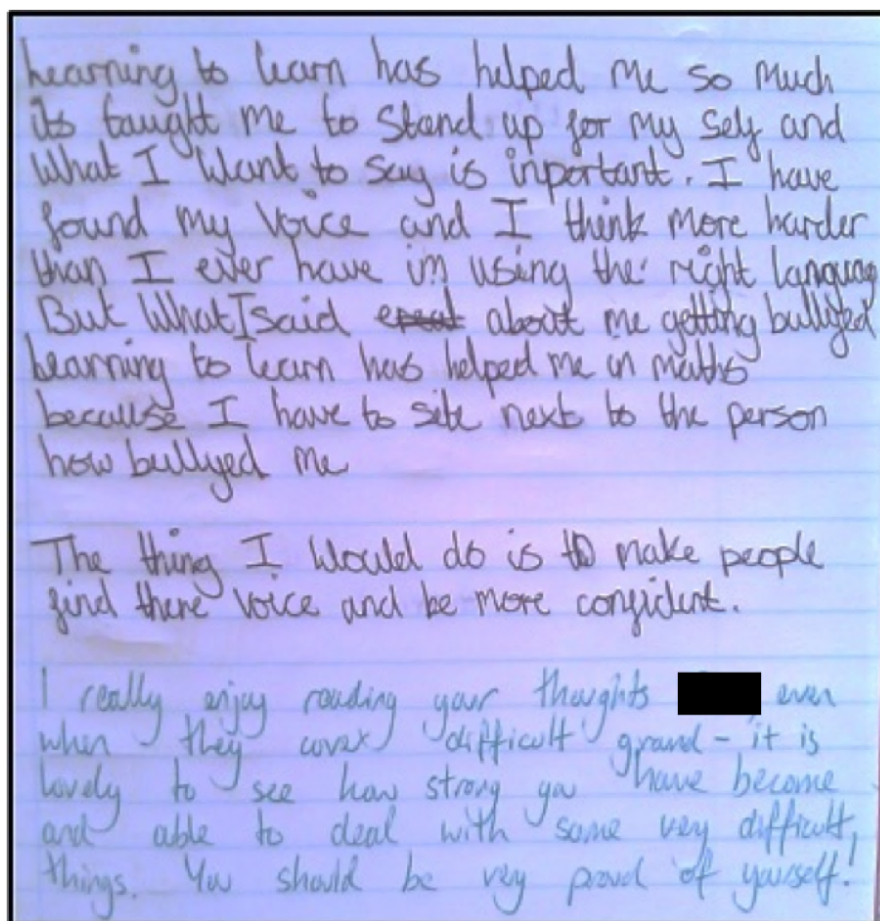 Learning to learn has helped me so much
its taught me to stand up for my self and
what I want to say is inportant. I have
found my voice and I think more harder
than I ever have im using the right languag
But what I said about me getting bullyed
Learning to learn has helped me in maths
because I have to site next to the person
how bullyed me
The thing I would do is to make people
find there voice and be more confident.
I really enjoy reading your thoughts even
when they cover difficult ground - it is
lovely to see how strong you have become
and able to deal with some very difficult,
things. You should be very proud of yourself!